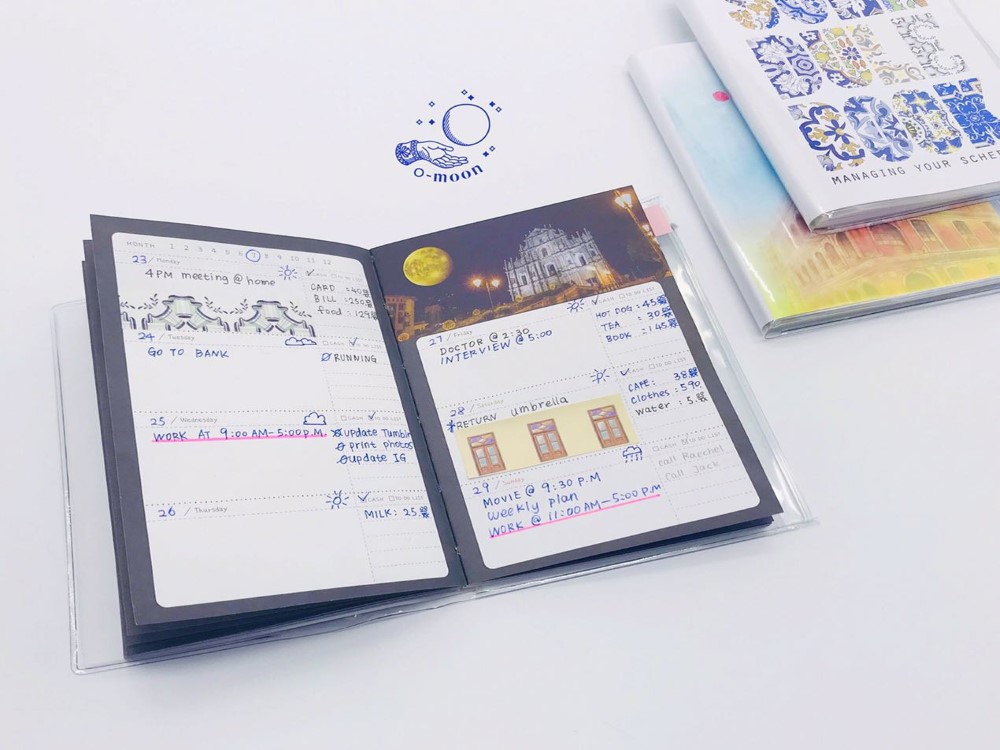 o-moon
MANAGING YOUR
MONTH 1 2 3 4 5 6 7 8 9 10 11 12
23 / Monday
4PM meeting @ home
CASH TO DO LIST
CARD : 40
BILL : 250
food : 129
24 / Tuesday
GO TO BANK
RUNNING
25 / Wednesday
CASH TO DO LIST
WORK AT 9:00 AM-5:00 P.M.
update Tumblr
print photos
update IG
26 / Thursday
CASH TO DO LIST
MILK : 25.
27 / Friday
DOCTOR @ 2:30
INTERVIEW @ 5:00
CASH TO DO LIST
HOT DOG : 45
TEA : 30
BOOK : 145
28 / Saturday
RETURN umbrella
CASH TO DO LIST
CAFE : 38
clothes : 590
water : 5.
29 / Sunday
MOVIE @ 9:30 P.M
weekly plan
WORK @ 11:00 AM-5:00 P.M
CASH TO DO LIST
call Raechel
call Jack